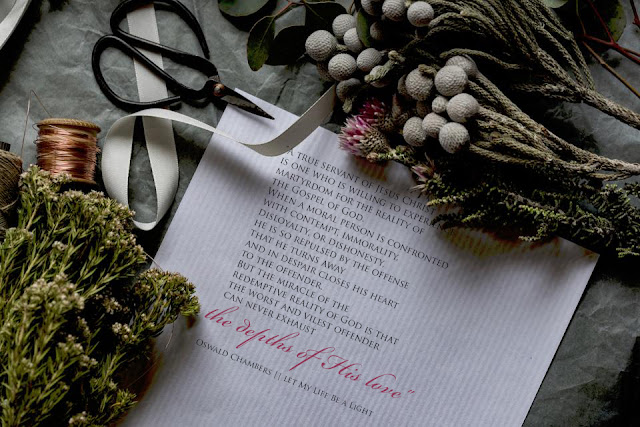 TRUE SERVANT OF JESUS CHRIST
IS ONE WHO IS WILLING TO EXPERI
MARTYRDOM FOR THE REALITY OF
THE GOSPEL OF GOD.
WHEN A MORAL PERSON IS CONFRONTED
WITH CONTEMPT, IMMORALITY,
DISLOYALTY OR DISHONESTY,
HE IS SO REPULSED BY THE OFFENSE
THAT HE TURNS AWAY
AND IN DESPAIR CLOSES HIS HEART
TO THE OFFENDER.
BUT THE MIRACLE OF THE
REDEMPTIVE REALITY OF GOD IS THAT
THE WORST AND VILEST OFFENDER
CAN NEVER EXHAUST
the depths of His love"
OSWALD CHAMBERS || LET MY LIFE BE A LIGHT